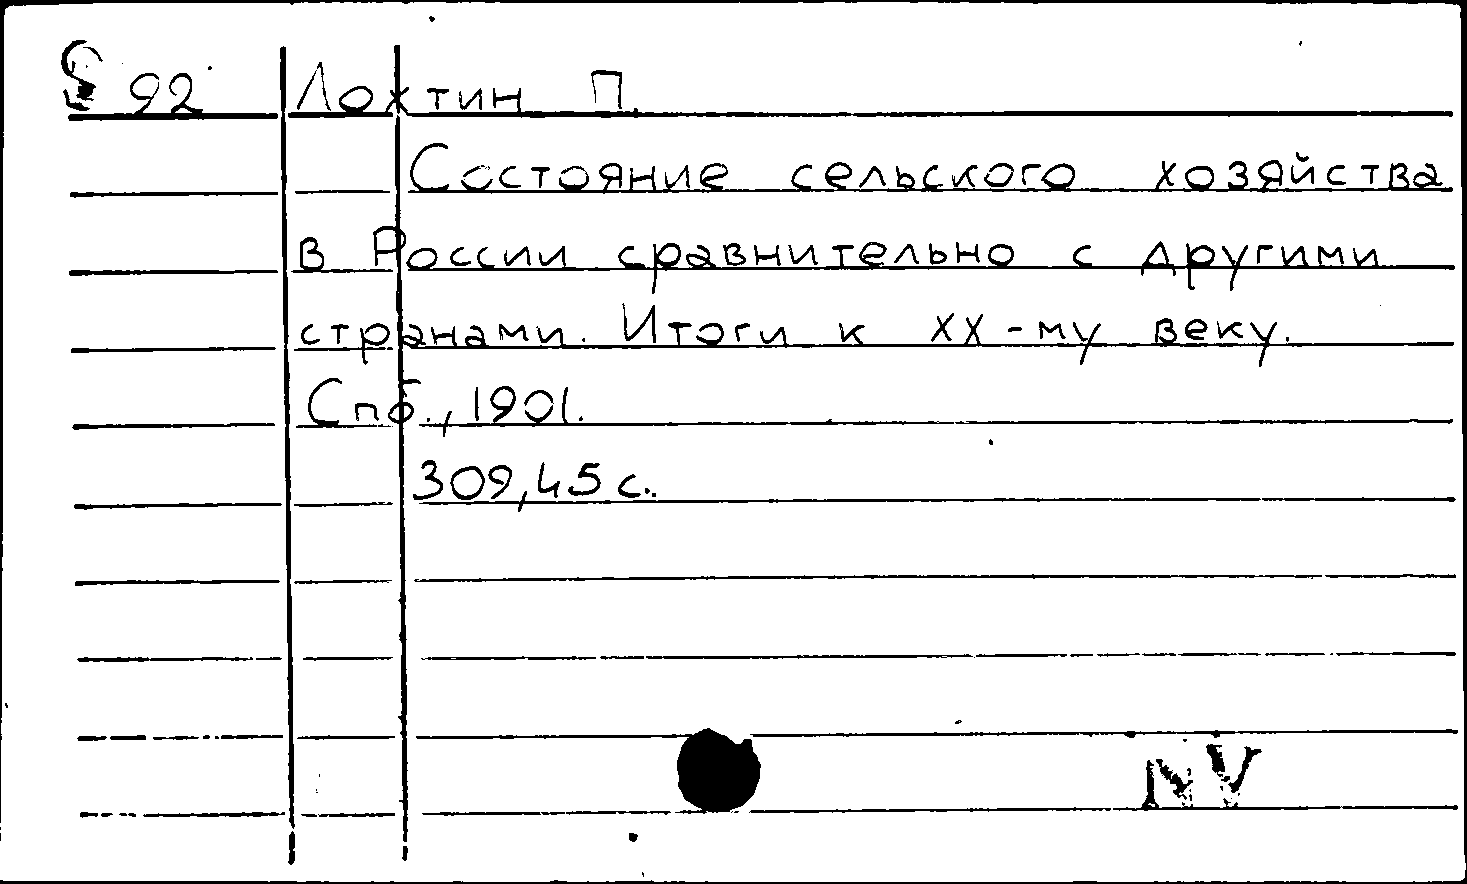 § 92 Лохтин П.
Состояние сельского хозяйства
в России сравнительно с другими
странами. Итоги к XX-му веку.
Спб., 1901.
309,45 с.
NV